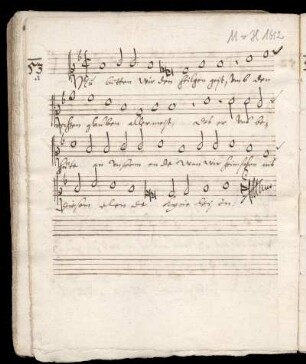 M v H 1852
53
Nu bitten wir den heilgen geist, umb den
rechten glauben allermeist, das er uns be
hütte an unserm ende wen wir heim farn aus
diesem elende kyrie leis on.